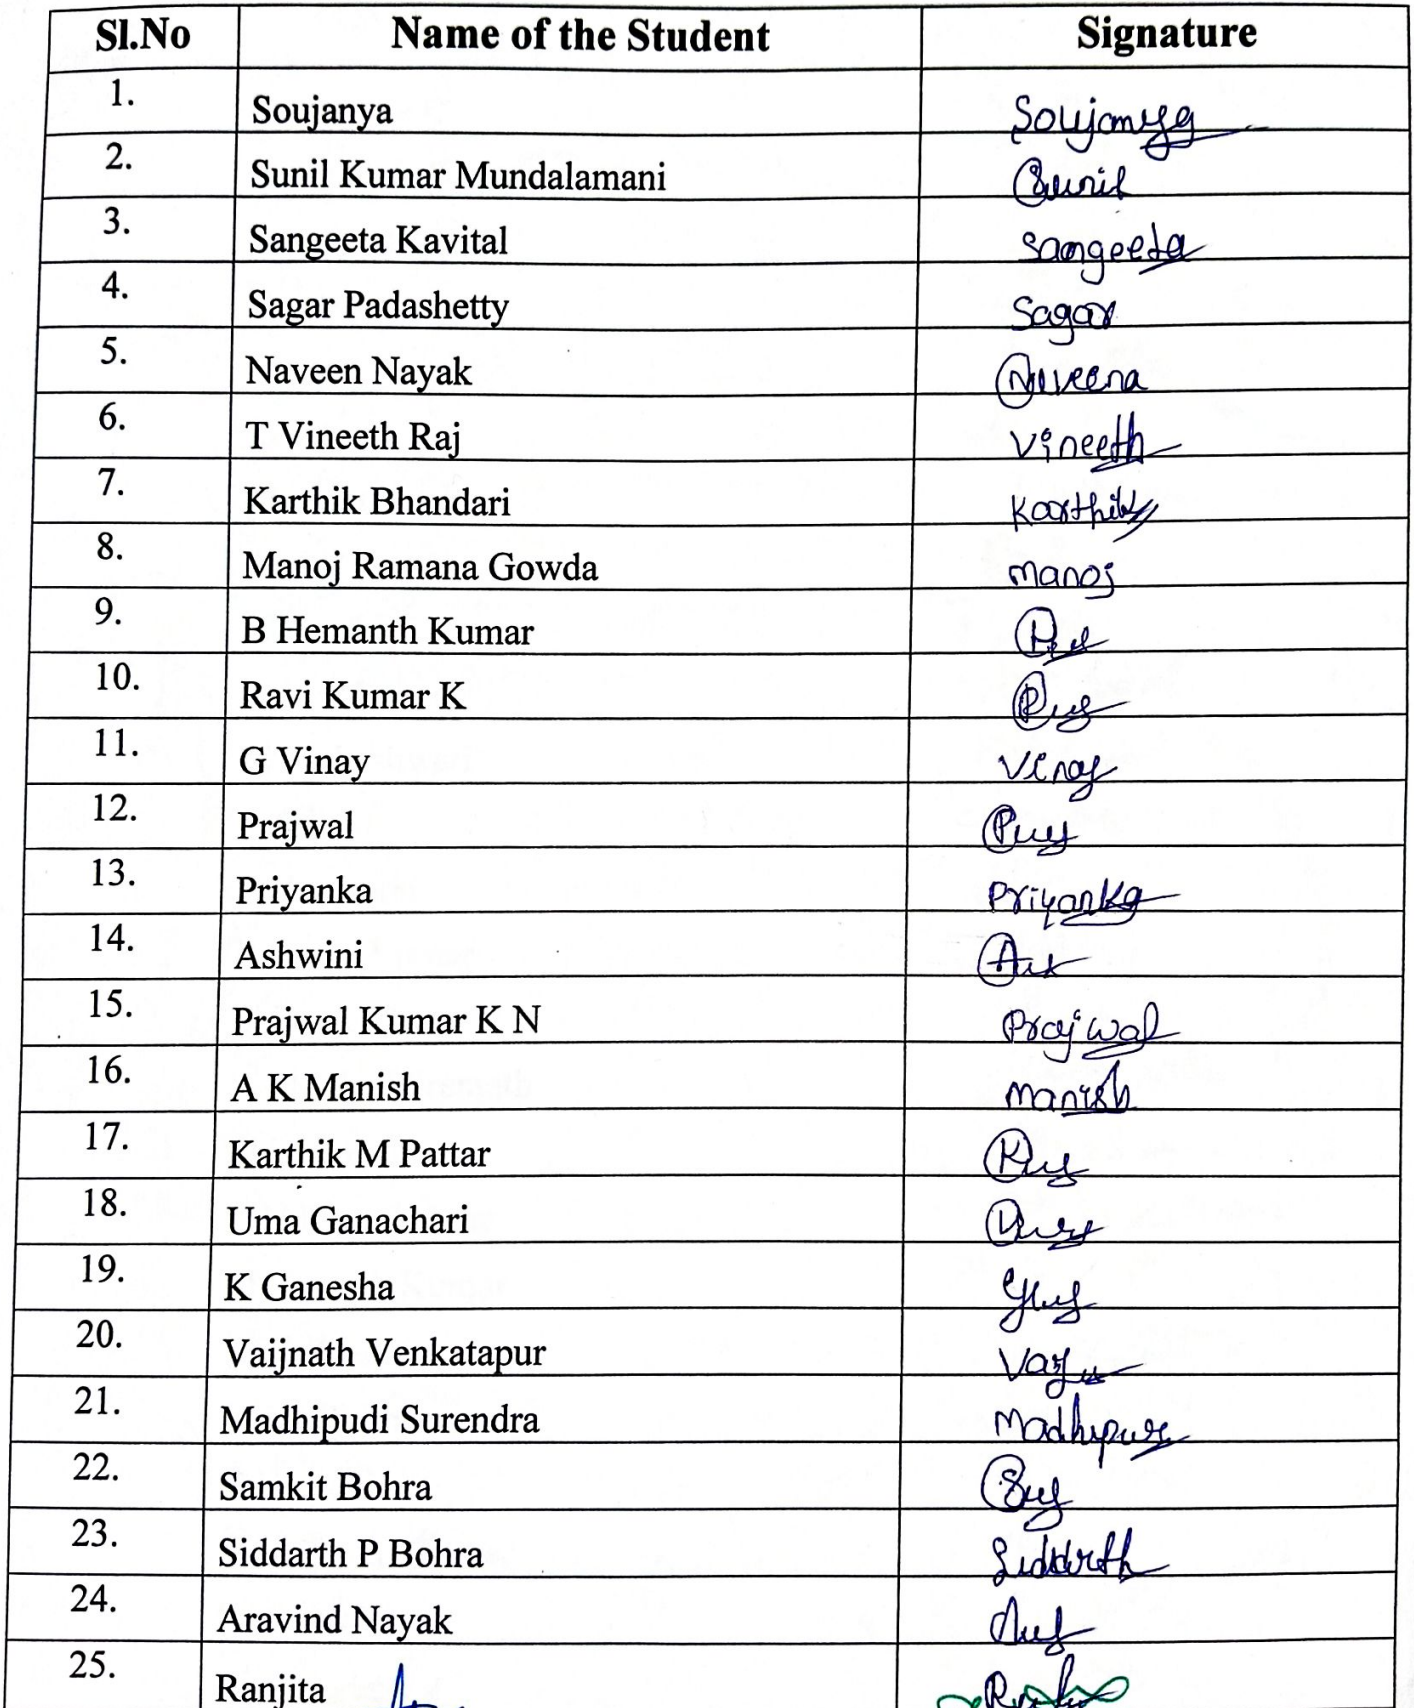 Sl.No Name of the Student Signature
1. Soujanya Soujanya
2. Sunil Kumar Mundalamani Sunil
3. Sangeeta Kavital Sangeeta
4. Sagar Padashetty Sagar
5. Naveen Nayak Naveena
6. T Vineeth Raj Vineeth
7. Karthik Bhandari Karthik
8. Manoj Ramana Gowda Manoj
9. B Hemanth Kumar
10. Ravi Kumar K
11. G Vinay Vinay
12. Prajwal
13. Priyanka Priyanka
14. Ashwini
15. Prajwal Kumar K N Prajwal
16. A K Manish Manish
17. Karthik M Pattar
18. Uma Ganachari
19. K Ganesha
20. Vaijnath Venkatapur
21. Madhipudi Surendra
22. Samkit Bohra
23. Siddarth P Bohra Siddarth
24. Aravind Nayak
25. Ranjita